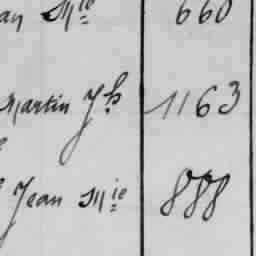 an Mie 660
Martin Jh 1163
Jean Mie 888